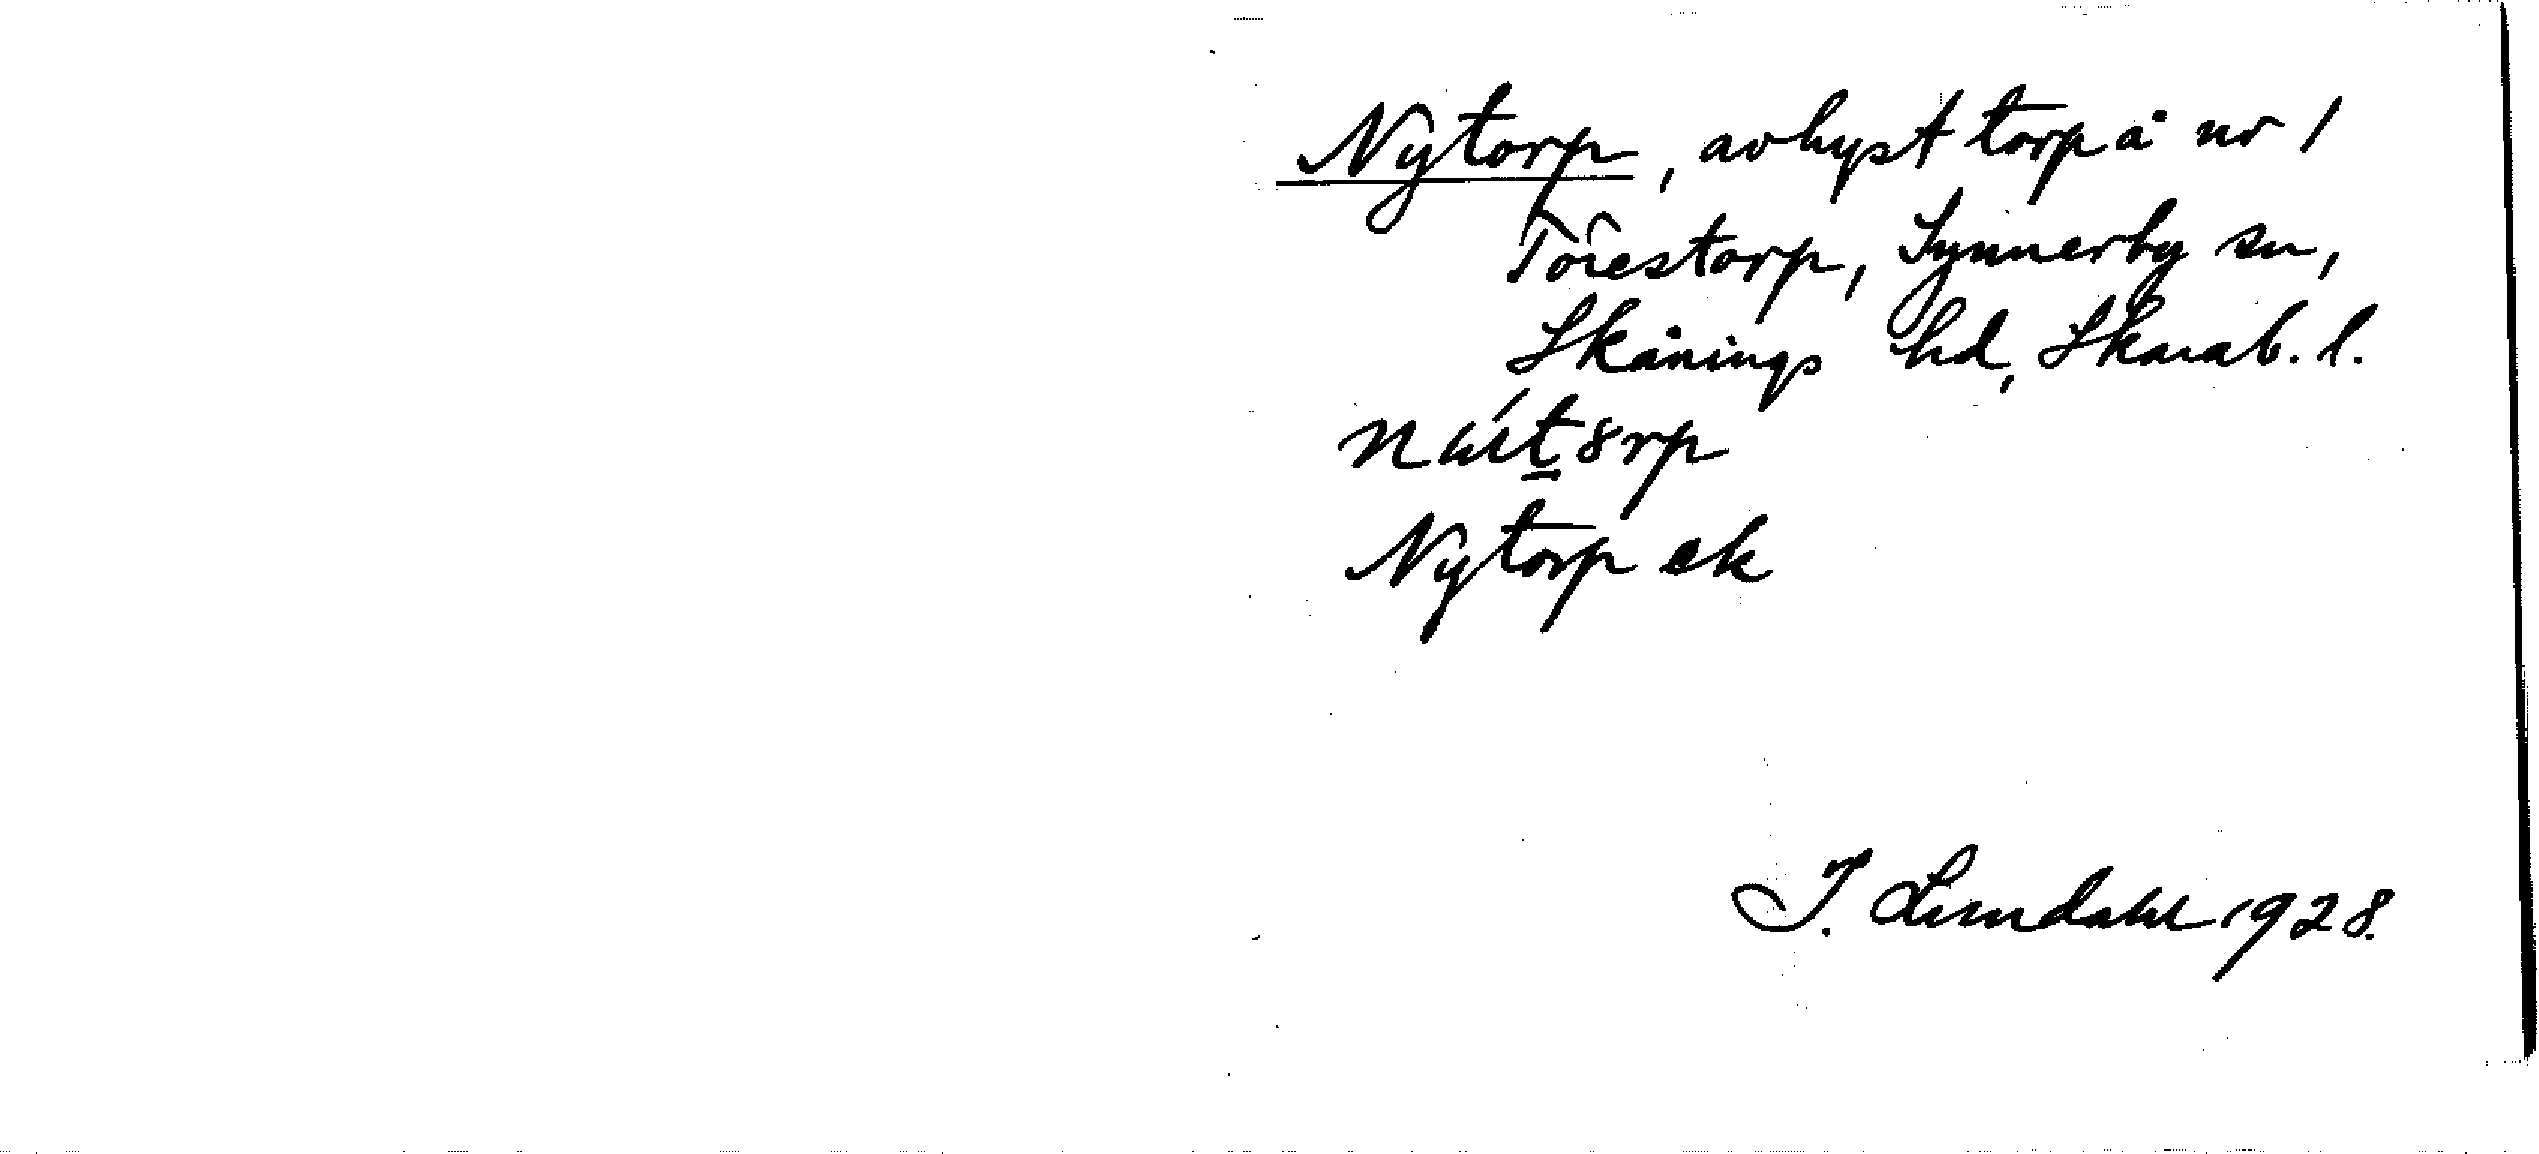 Nytorp, avhyst torp å nr 1
Torestorp, Synnerby sn,
Skånings hd, Skarab. l.
Nytorp ek
J. Lindahl 1928.